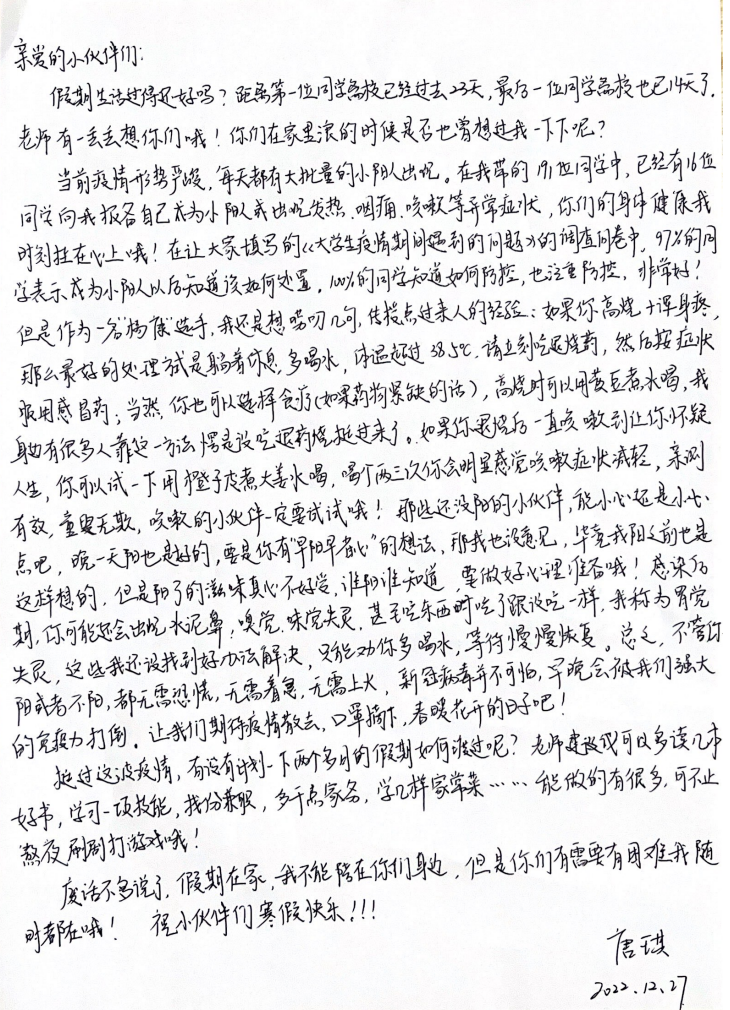 亲爱的小伙伴们:
假期生活过得还好吗?距离第一位同学离校已经过去23天,最后一位同学离校也已14天了,
老师有一丢丢想你们哦!你们在家里浪的时候是否也曾想过我一下下呢?
当前疫情形势严峻,每天都有大批量的小阳人出现。在我带的191位同学中,已经有16位
同学向我报备自己成为小阳人或出现发热、咽痛、咳嗽等异常症状,你们的身体健康我
时刻挂在心上哦!在让大家填写的《大学生疫情期间遇到的问题》的调查问卷中,97%的同
学表示成为小阳人以后知道该如何处置,100%的同学知道如何防控,也注重防控,非常好!
但是作为一名"杨康"选手,我还是想唠叨几句,传授点过来人的经验:如果你高烧+浑身疼,
那么最好的处理方式是躺着休息,多喝水,体温超过38.5℃,请立刻吃退烧药,然后按症状
服用感冒药;当然,你也可以选择食疗(如果药物紧缺的话),高烧时可以用黄豆煮水喝,我
身边有很多人靠这一方法愣是没吃退药烧挺过来了。如果你退烧后一直咳嗽到让你怀疑
人生,你可以试一下用橙子皮煮大姜水喝,喝个两三次你会明显感觉咳嗽症状减轻,亲测
有效,童叟无欺,咳嗽的小伙伴一定要试试哦!那些还没阳的小伙伴,能小心还是小心
点吧,晚一天阳也是好的,要是你有"早阳早省心"的想法,那我也没意见,毕竟我阳之前也是
这样想的,但是阳了的滋味真心不好受,谁阳谁知道,要做好心理准备哦!感染后
期,你可能还会出现水泥鼻,嗅觉、味觉失灵,甚至吃东西时吃了跟没吃一样,我称为胃觉
失灵,这些我还没找到好办法解决,只能劝你多喝水,等待慢慢恢复。总之,不管你
阳或者不阳,都无需恐慌,无需着急,无需上火,新冠病毒并不可怕,早晚会被我们强大
的免疫力打倒。让我们期待疫情散去,口罩摘下,春暖花开的日子吧!
挺过这波疫情,有没有计划一下两个多月的假期如何渡过呢?老师建议或可以多读几本
好书,学习一项技能,找份兼职,多干点家务,学几样家常菜……能做的有很多,可不止
熬夜刷剧打游戏哦!
废话不多说了,假期在家,我不能陪在你们身边,但是你们有需要有困难我随
时都在哦! 祝小伙伴们寒假快乐!!!
唐琪
2022.12.27